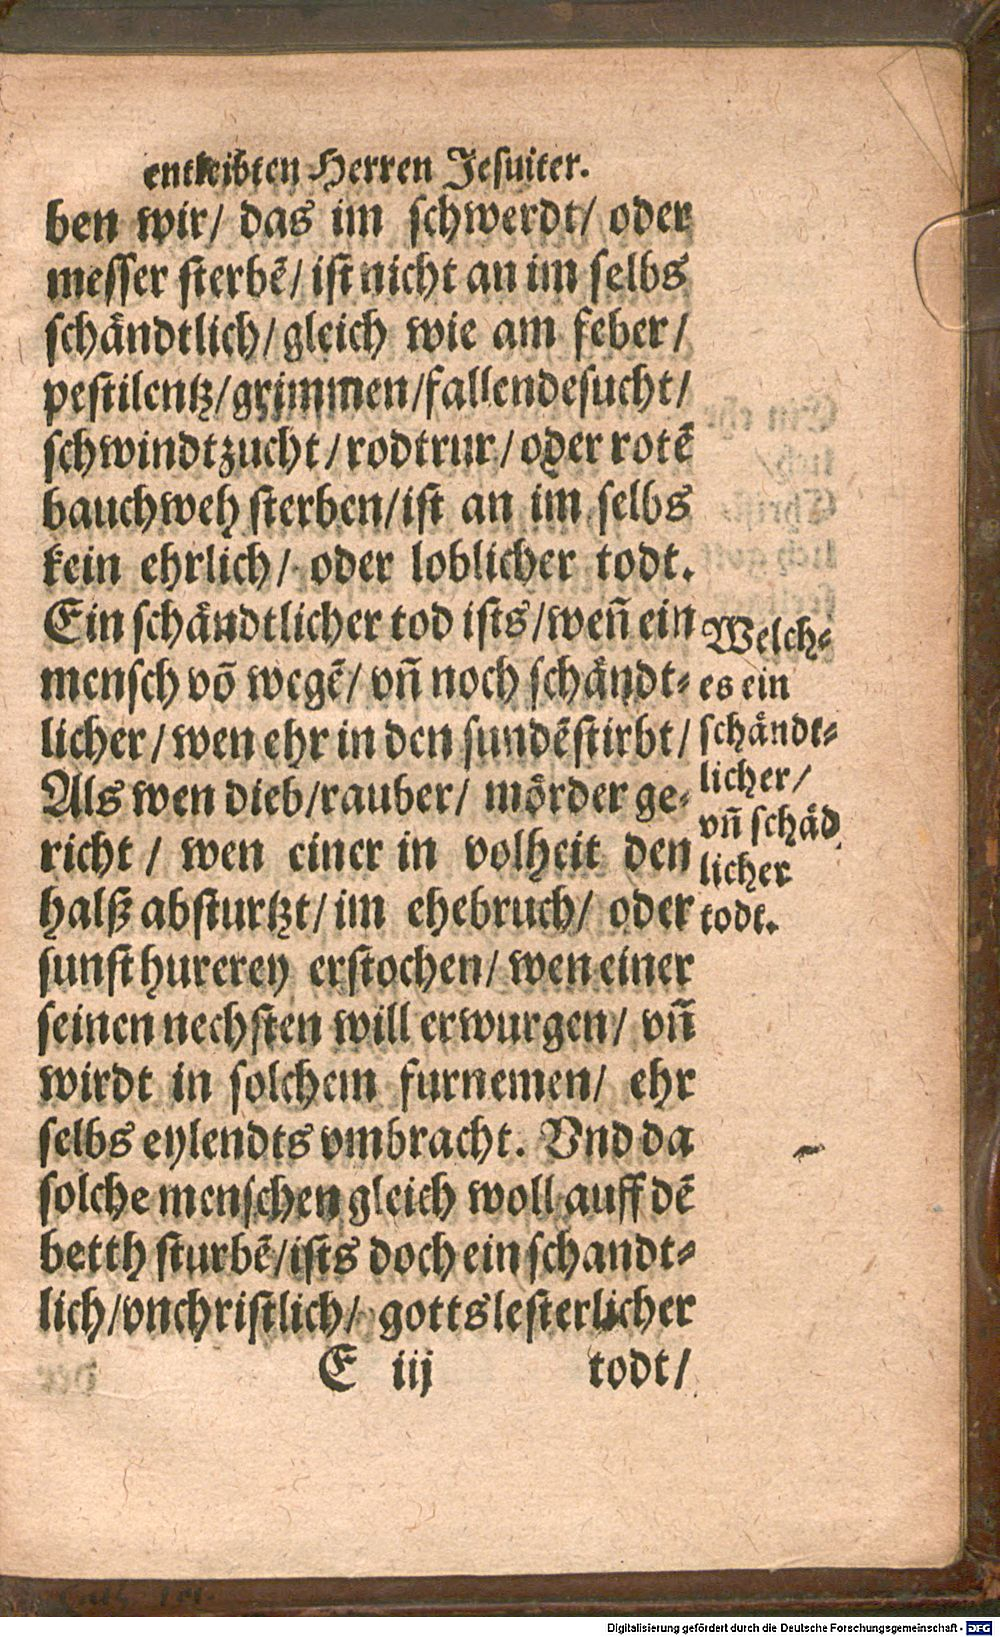 entleibten Herren Jesuiter.
ben wir/ das im schwerdt/ oder
messer sterbẽ/ ist nicht an im selbs
schändtlich/ gleich wie am feber/
pestilentz/ grimmen/ fallendesucht/
schwindtzucht/ rodtrur/ oder rotẽ
bauchweh sterben/ ist an im selbs
kein ehrlich/ oder loblicher todt.
Ein schändtlicher tod ists/ weñ ein
mensch võ wegẽ/ vñ noch schändt-
licher/ wen ehr in den sundẽ stirbt/
Als wen dieb/ rauber/ mörder ge-
richt/ wen einer in volheit den
halß absturtzt/ im ehebruch/ oder
sunst hurerey erstochen/ wen einer
seinen nechsten will erwurgen/ vñ
wirdt in solchem furnemen/ ehr
selbs eylendts vmbracht. Vnd da
solche menschen gleich woll auff dẽ
betth sturbẽ/ ists doch ein schandt-
lich/ vnchristlich/ gottslesterlicher
E iij todt/
Welch-
es ein
schändt-
licher/
vñ schäd
licher
todt.
Digitalisierung gefördert durch die Deutsche Forschungsgemeinschaft - DFG